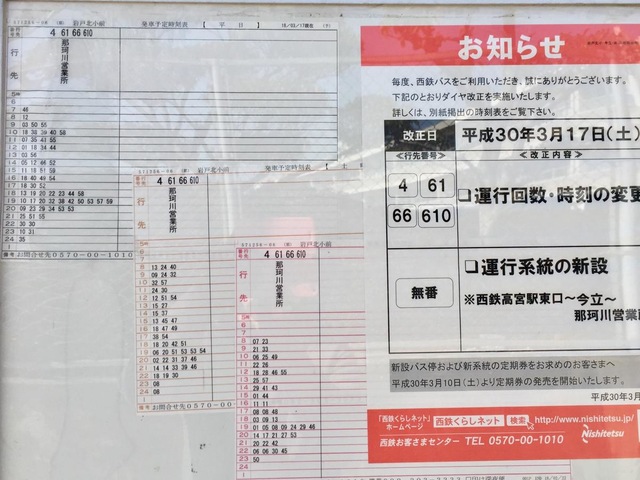 岩戸北小前 発車予定時刻表 【 平 日 】
4 61 66 610
行先
那珂川営業所
5時
6
7 46
8 12
9 03 50 55
10 18 38 39 40 58
11 07 35 42 55
12 01 18 34 44
13 03 56
14 05 12 66 52
15 11 18 51 59
16 18 40 49 54
17 18 30 52
18 13 19 20 22 23 44 58
19 10 17 20 32 38 42 50 53 57 59
20 09 23 29 34 53 53
21 25 51 55
22 30 30
23 10 31
24 35
備考 お問合せ先 0570-00-1010
岩戸北小前 発車予定時刻表 【 土
4 61 66 610
行先
那珂川営業所
5時
6
7
8 13 24 40
9 09 24 32
10 32 57
11 24 30
12 12 51 54
13 15 27
14 15 37
15 13 45 47
16 18 47 49
17 38 54
18 18 20 42 51
19 06 20 51 53 53 54
20 02 22 31 37 46
21 14 14 33 39 46
22 18 19 30
23 08
24 08
備考 お問合せ先 0570-00
岩戸北小前
4 61 66 610
行先
那珂川営業所
5時
6
7
8 07 23
9 21 33
10 06 25 49
11 22 26
12 18 28 46 55
13 25 57
14 29 41 43
15 01 44
16 11 11
17 08 08 48
18 03 09 13
19 01 05 08 09 24 29 46
20 14 17 21 27 53
21 20 42
22 06 23 30 45
23 50
お知らせ
毎度、西鉄バスをご利用いただき、誠にありがとうございます。
下記のとおりダイヤ改正を実施いたします。
詳しくは、別紙掲出の時刻表をご覧下さい。
改正日 平成30年3月17日(土)
≪行先番号≫ ≪改正内容≫
4 61
66 610
❑運行回数・時刻の変更
無番
❑運行系統の新設
※西鉄高宮駅東口~今立~
那珂川営業
新設バス停および新系統の定期券をお求めのお客さまへ
平成30年3月10日(土)より定期券の発売を開始いたします。
平成30年3月
「西鉄くらしネット」ホームページ 西鉄くらしネット 検索 http://www.nishitetsu.jp/
西鉄お客さまセンター TEL 0570-00-1010 Nishitetsu